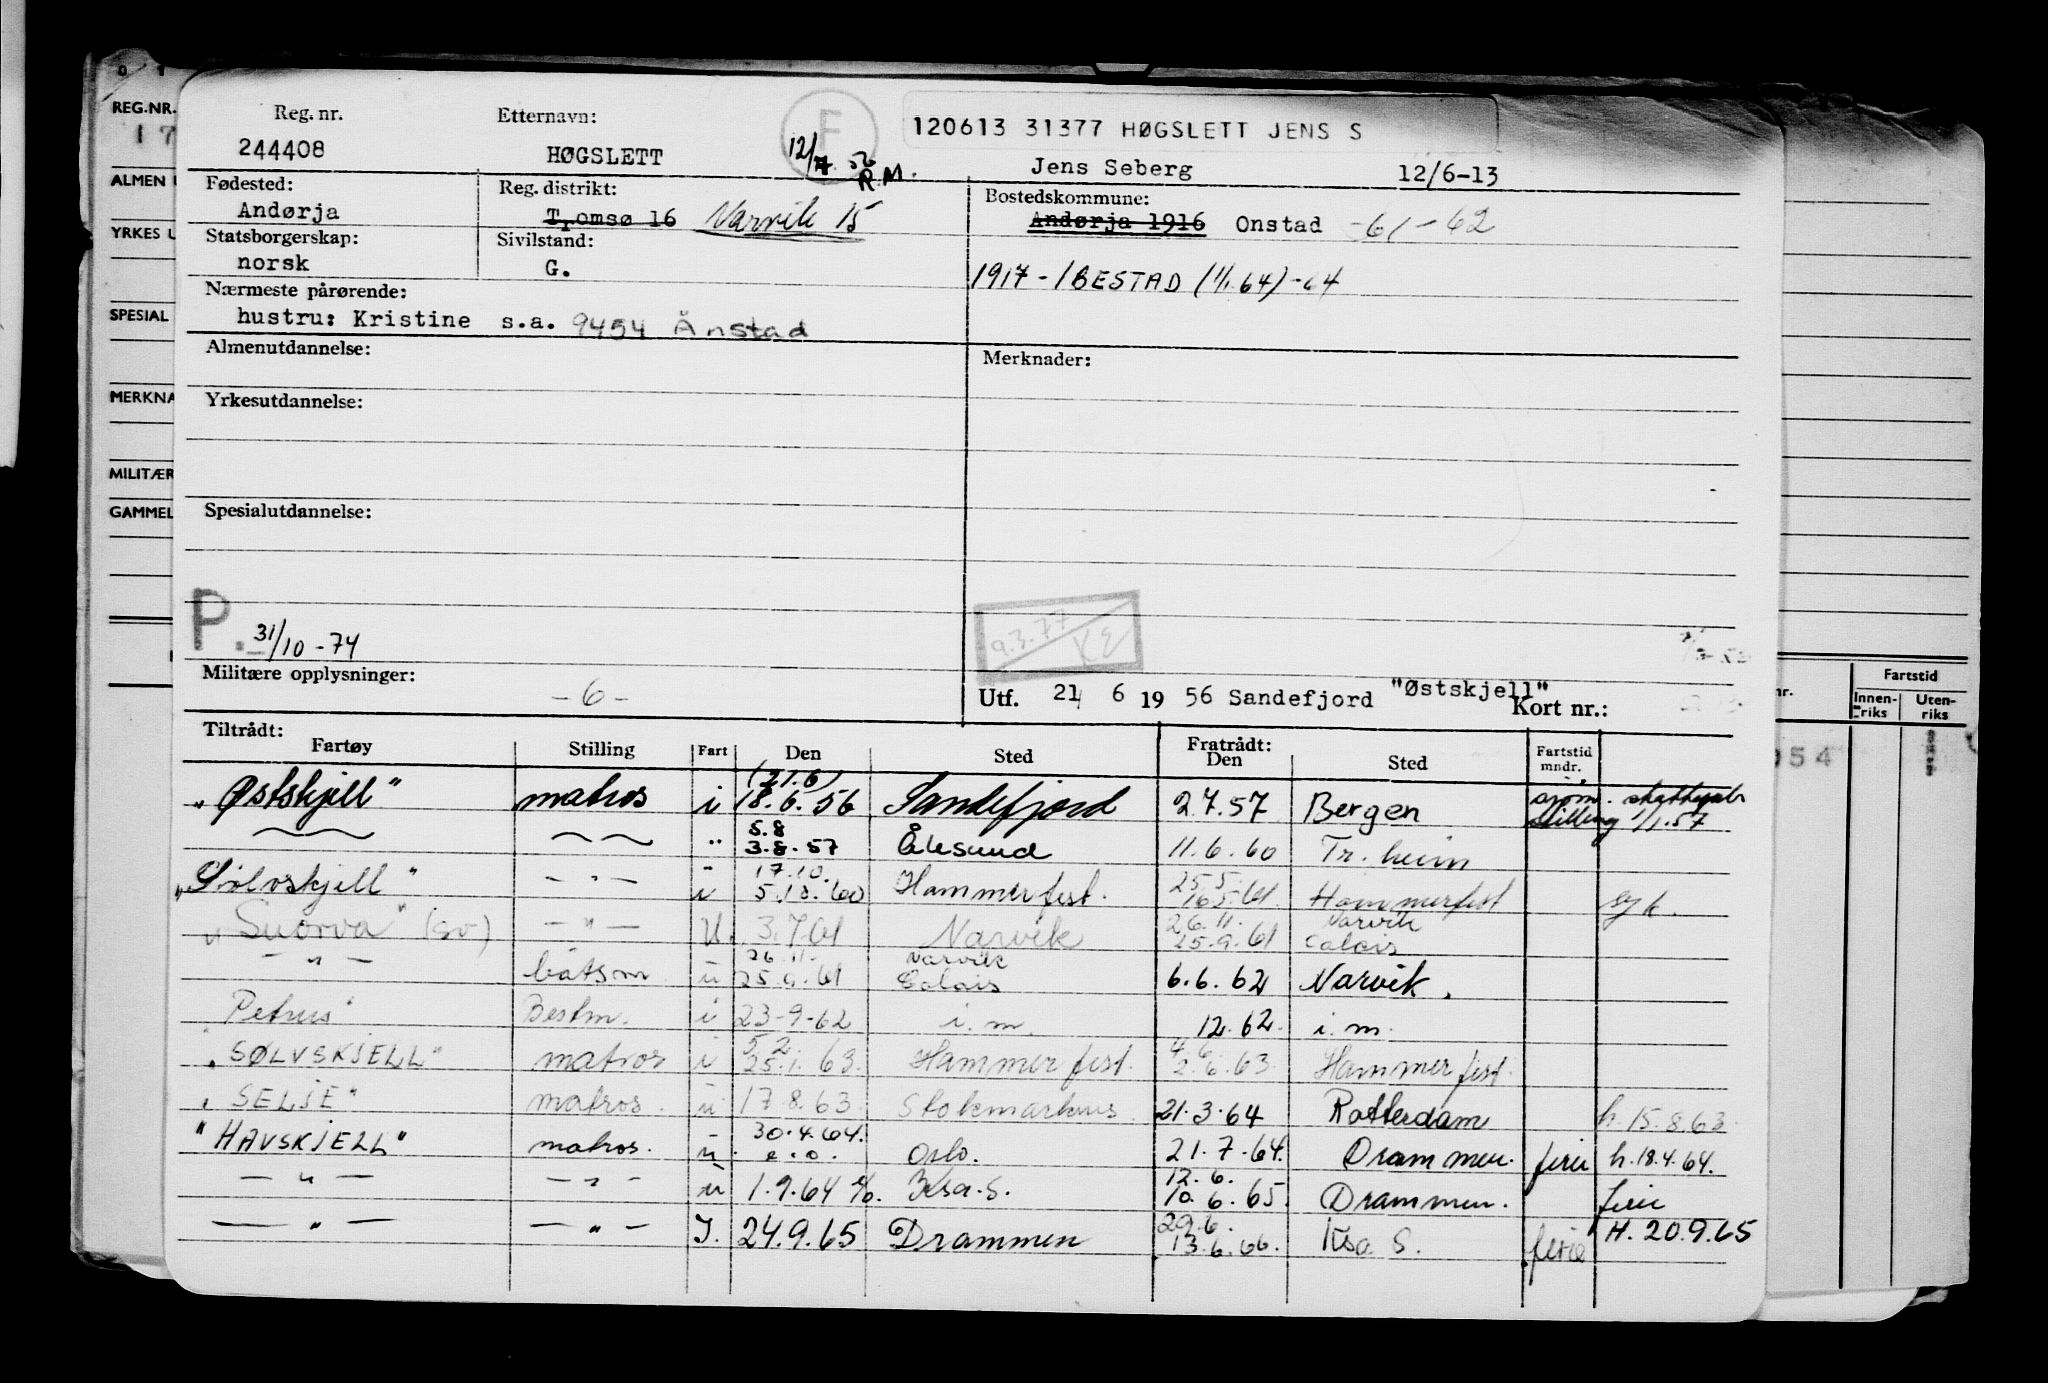 0 1
REG.NR.
17
ALMEN U
YRKES U
SPESIAL
MERKNA
MILITÆR
GAMMEL
Reg. nr. Etternavn: F 120613 31377 HØGSLETT JENS S
244408 HØGSLETT 12/7 56 R.M. Jens Seberg 12/6-13
Fødested: Reg. distrikt: Bostedskommune:
Andørja Tromsø 16 Narvik 15 Andørja 1916 Onstad -61-62
Statsborgerskap: Sivilstand:
norsk G. 1917 - IBESTAD (1/1.64) -64
Nærmeste pårørende:
hustru: Kristine s.a. 9454 Ånstad
Almenutdannelse: Merknader:
Yrkesutdannelse:
Spesialutdannelse:
P. 31/10-74 9.3.77 KE
Militære opplysninger: -6- Utf. 21 6 19 56 Sandefjord "Østskjell" Kort nr.:
Fartstid
nr. Innen-riks Uten-riks
054
Tiltrådt: Fratrådt:
Fartøy Stilling Fart Den Sted Den Sted Fartstid mndr.
(21.6)
"Østskjell" matros i 18.6.56 Sandefjord 2.7.57 Bergen stilling 1/1.57
5.8
" 3.8.57 Ålesund 11.6.60 Tr.heim
17.10. 25.5.
"Sølvskjell" - " - i 5.10.60 Hammerfest. 16.5.61 Hammerfest syk.
26.11. Narvik
"Suorva" (sv) - " - U. 3.7.61 Narvik 25.9.61 Calais
26.11. Narvik
- " - båtsm. u 25.9.61 Calais 6.6.62 Narvik.
"Petrus" Bestm. i 23-9-62 i.m. 12.62. i.m.
5.2. 4.6
"SØLVSKJELL" matros i 25.1.63. Hammerfest. 2.6.63. Hammerfest.
"SELJE" matros. u 17.8.63. Stokmarknes. 21.3.64 Rotterdam h.15.8.63.
30.4.64.
"HAVSKJELL" matros. u. e.o. Oslo. 21.7.64. Drammen. ferie h.18.4.64.
12.6.
- " - - " - u 1.9.64 Krsa.S. 10.6.65. Drammen. ferie
29.6.
- " - - " - I. 24.9.65 Drammen 13.6.66. Krsa S. ferie H.20.9.65